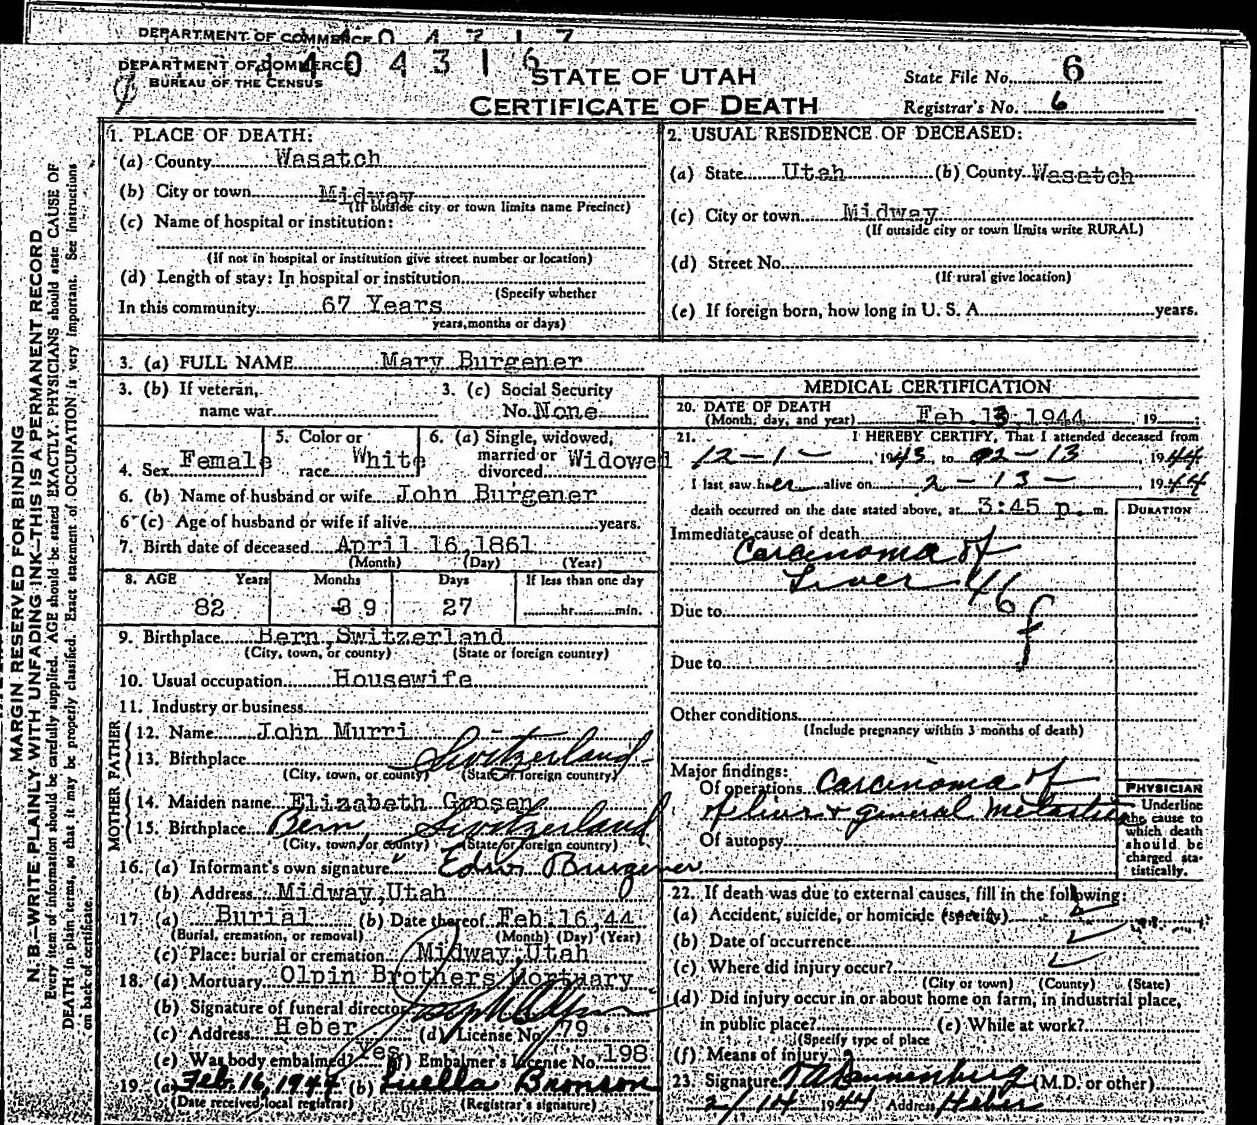 DEPARTMENT OF COMMERCE 4 7 1 7
DEPARTMENT OF COMMERCE 4 0 4 3 1 6
BUREAU OF THE CENSUS
STATE OF UTAH
CERTIFICATE OF DEATH
State File No. 6
Registrar's No. 6
MARGIN RESERVED FOR BINDING
N. B.—WRITE PLAINLY WITH UNFADING INK—THIS IS A PERMANENT RECORD
Every item of information should be carefully supplied. AGE should be stated EXACTLY. PHYSICIANS should state CAUSE OF
DEATH in plain terms, so that it may be properly classified. Exact statement of OCCUPATION is very important. See instructions
on back of certificate.
1. PLACE OF DEATH:
(a) County Wasatch
(b) City or town Midway
(If outside city or town limits name Precinct)
(c) Name of hospital or institution:
(If not in hospital or institution give street number or location)
(d) Length of stay: In hospital or institution
(Specify whether
In this community 67 Years
years, months or days)
2. USUAL RESIDENCE OF DECEASED:
(a) State Utah (b) County Wasatch
(c) City or town Midway
(If outside city or town limits write RURAL)
(d) Street No.
(If rural give location)
(e) If foreign born, how long in U. S. A. years.
3. (a) FULL NAME Mary Burgener
3. (b) If veteran,
name war
3. (c) Social Security
No. None
4. Sex Female
5. Color or
race White
6. (a) Single, widowed,
married or
divorced Widowed
6. (b) Name of husband or wife John Burgener
6 (c) Age of husband or wife if alive years.
7. Birth date of deceased April 16, 1861
(Month) (Day) (Year)
8. AGE Years Months Days If less than one day
82 9 27 hr. min.
9. Birthplace Bern, Switzerland
(City, town, or county) (State or foreign country)
10. Usual occupation Housewife
11. Industry or business
FATHER
12. Name John Murri
13. Birthplace Switzerland
(City, town, or county) (State or foreign country)
MOTHER
14. Maiden name Elizabeth Goosen
15. Birthplace Bern, Switzerland
(City, town, or county) (State or foreign country)
16. (a) Informant's own signature Burgener
(b) Address Midway, Utah
17. (a) Burial (b) Date thereof Feb. 16, 44
(Burial, cremation, or removal) (Month) (Day) (Year)
(c) Place: burial or cremation Midway, Utah
18. (a) Mortuary Olpin Brothers Mortuary
(b) Signature of funeral director
(c) Address Heber (d) License No. 79
(e) Was body embalmed? Yes (f) Embalmer's License No. 198
19. (a) Feb. 16, 1944 (b) Luella Bronson
(Date received local registrar) (Registrar's signature)
MEDICAL CERTIFICATION
20. DATE OF DEATH
(Month, day, and year) Feb. 13, 1944 19
21. I HEREBY CERTIFY, That I attended deceased from
12-1- 1943, to 2-13 1944
I last saw her alive on 2-13- 1944
death occurred on the date stated above, at 3:45 p. m.
DURATION
Immediate cause of death
Carcinoma of
Liver 46
f
Due to
Due to
Other conditions
(Include pregnancy within 3 months of death)
Major findings:
Of operations Carcinoma of
& general
Of autopsy
PHYSICIAN
Underline
the cause to
which death
should be
charged sta-
tistically.
22. If death was due to external causes, fill in the following:
(a) Accident, suicide, or homicide (specify)
(b) Date of occurrence
(c) Where did injury occur?
(City or town) (County) (State)
(d) Did injury occur in or about home on farm, in industrial place,
in public place? (e) While at work?
(Specify type of place
(f) Means of injury
23. Signature Dannenberg (M.D. or other)
2/14 1944 Address Heber